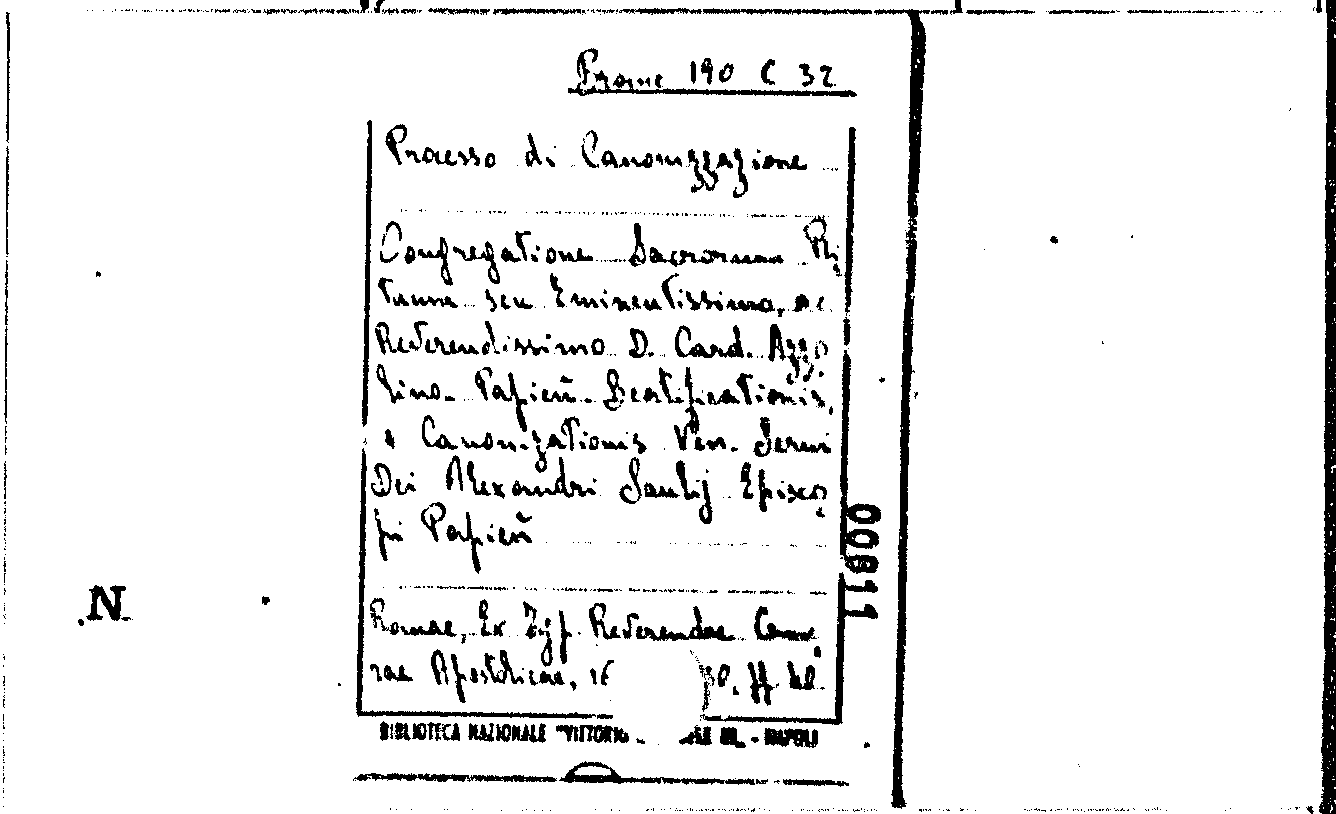 Prov. 190 C 32
Processo di Canonizzazione
Congregatione Sacrorum Ri-
tuum seu Eminentissimo, ac
Reverendissimo D. Card. Azzo
lino. Papień. Beatificationis,
& Canonizationis Ven. Servi
Dei Alexandri Saulij Episco-
pi Papień
Romae, Ex Typ. Reverendae Came
rae Apostolicae, 16
BIBLIOTECA NAZIONALE "VITTORIO III - NAPOLI
00811
N